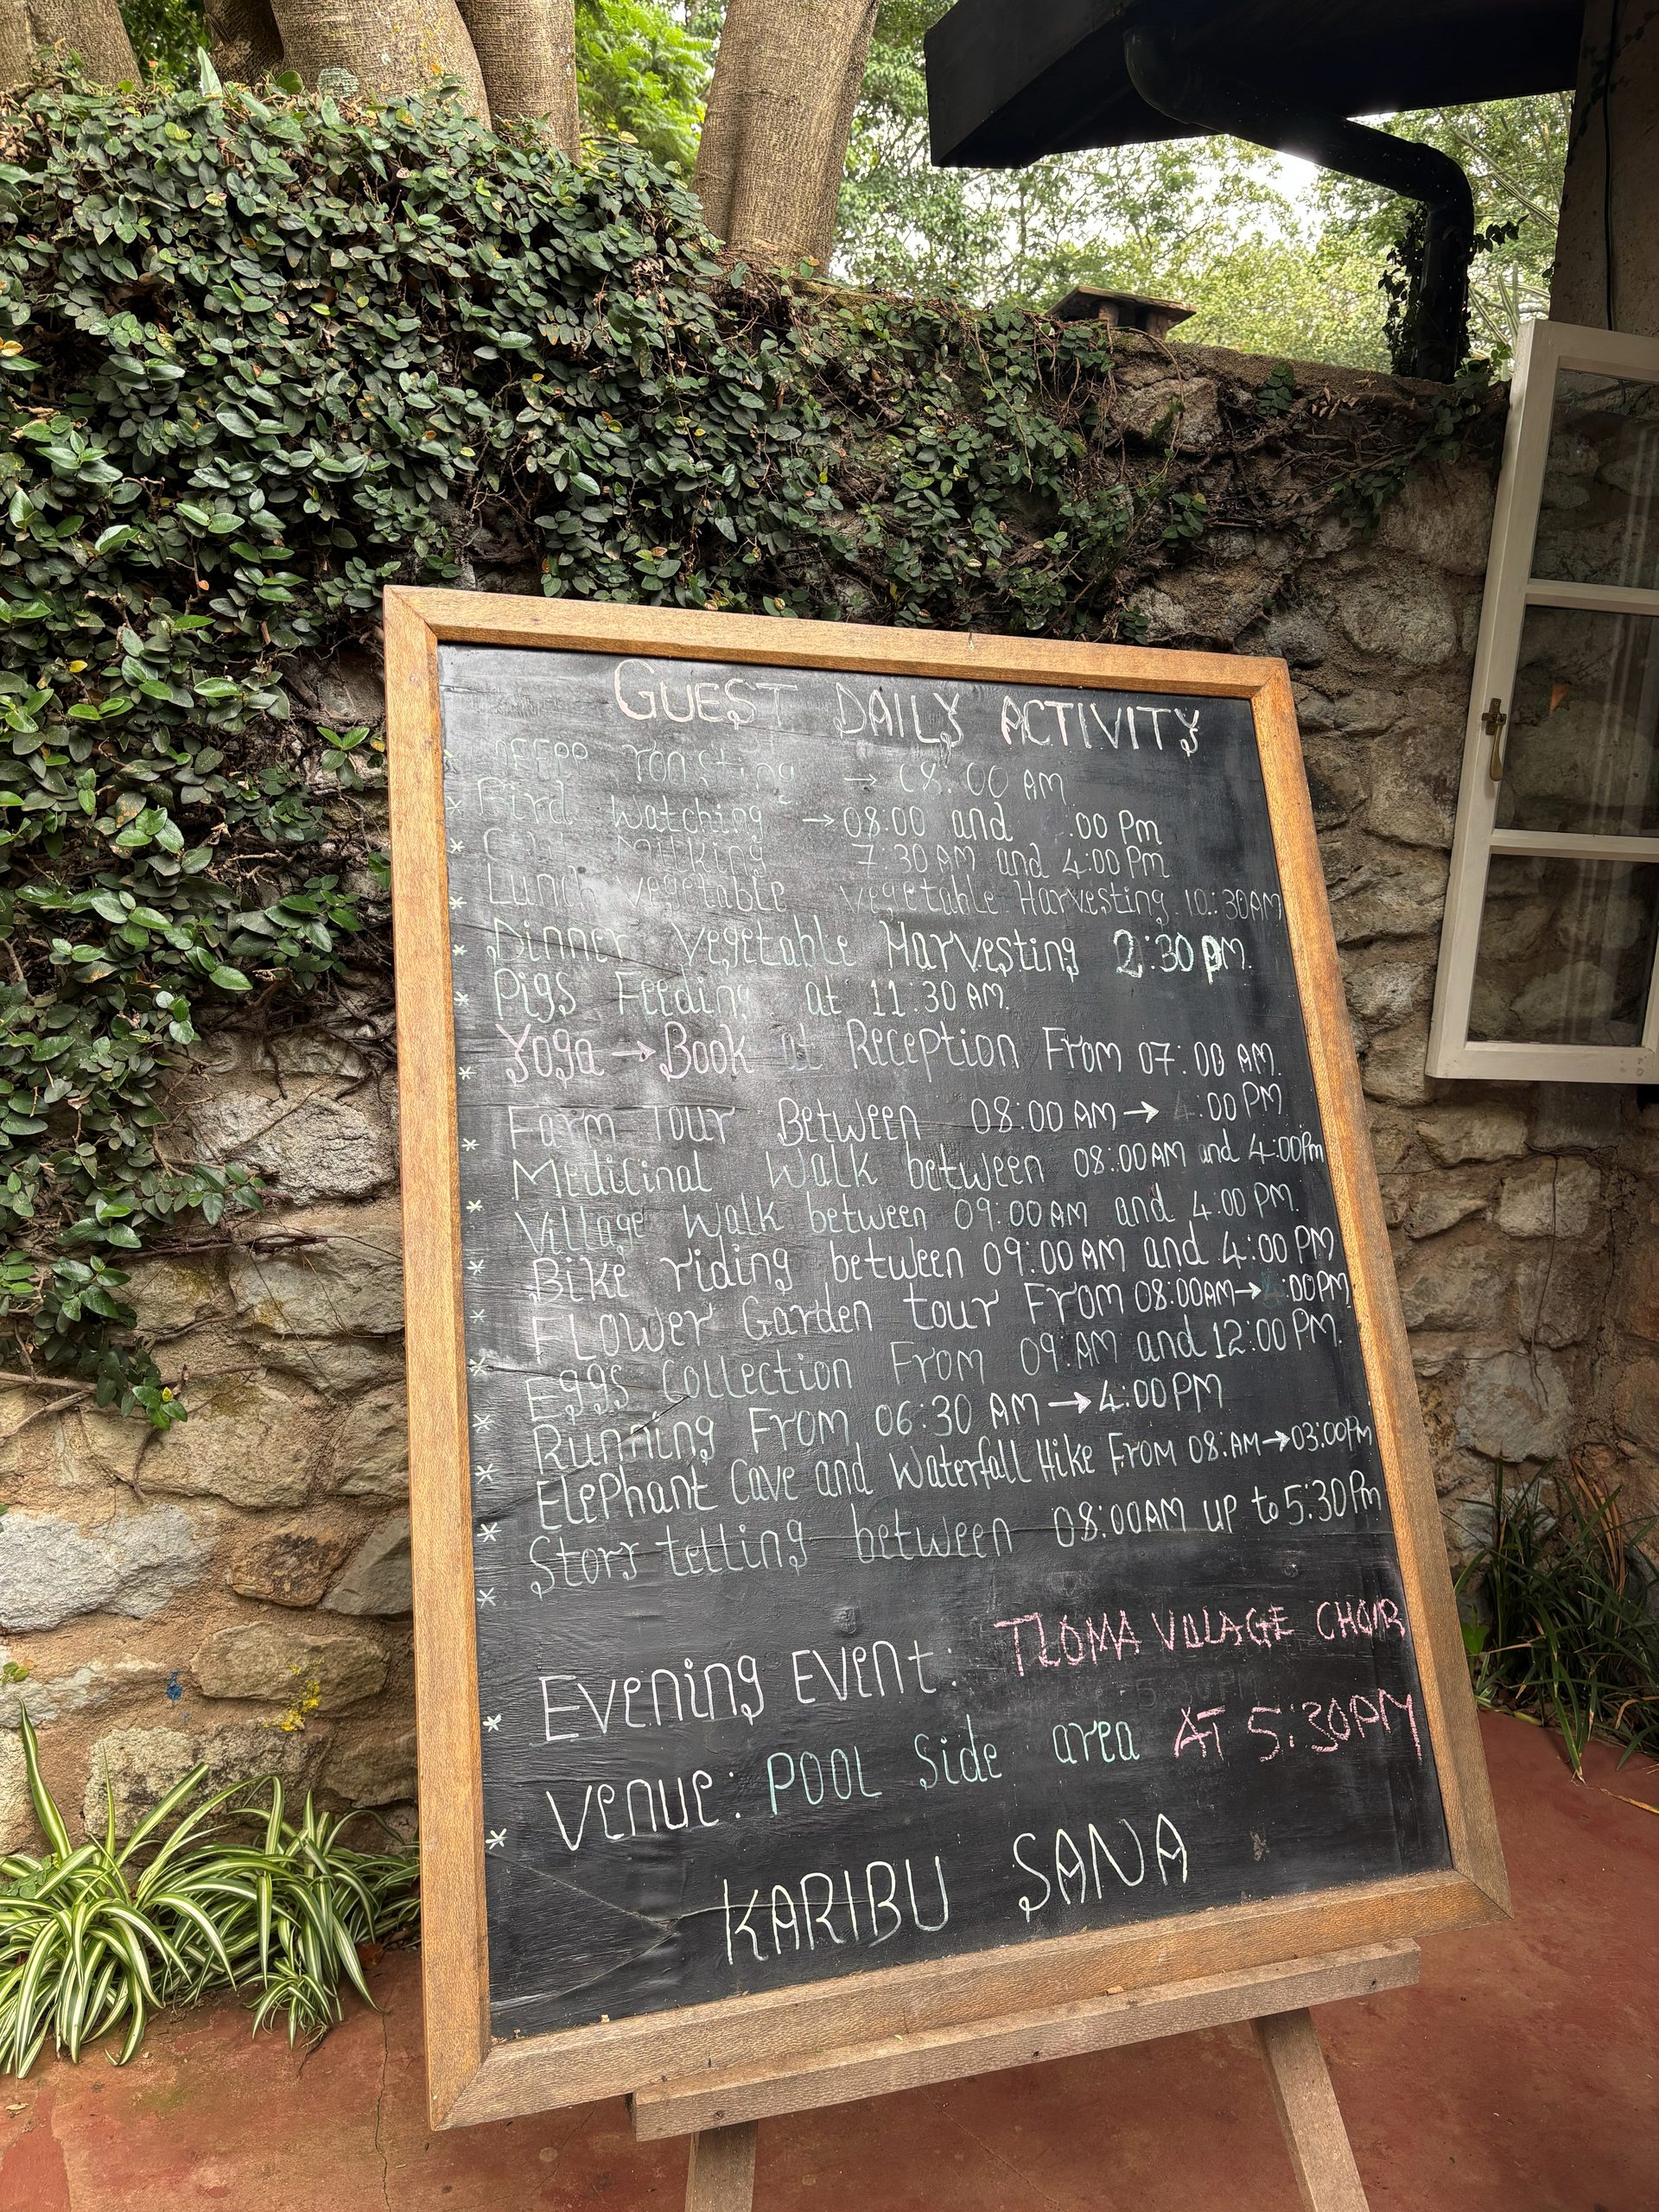 GUEST DAILY ACTIVITY
roasting → 08:00 AM
* Bird watching → 08:00 and :00 Pm
* Milking 7:30 AM and 4:00 Pm
* Lunch vegetable vegetable Harvesting 10:30AM
* Dinner vegetable Harvesting 2:30 pm.
* Pigs Feeding at 11.30 AM.
* Yoga → Book at Reception From 07:00 AM.
* Farm Tour Between 08:00 AM → 4:00 PM
Medicinal Walk between 08:00AM and 4:00Pm
* Village Walk between 09:00AM and 4:00 PM.
* Bike riding between 09:00AM and 4:00 PM
* FLOWER Garden tour From 08:00AM → :00PM
* Eggs collection From 09:AM and 12:00 PM.
* Running From 06:30 AM → 4:00PM
* ElePhant Cave and Waterfall Hike From 08:AM → 03:00Pm
* Story telling between 08:00AM up to 5:30Pm
*
* Evening EVENt: TLOMA VILLAGE CHOIR
5:30PM
* Venue: POOL Side area AT 5:30PM
KARIBU SANA